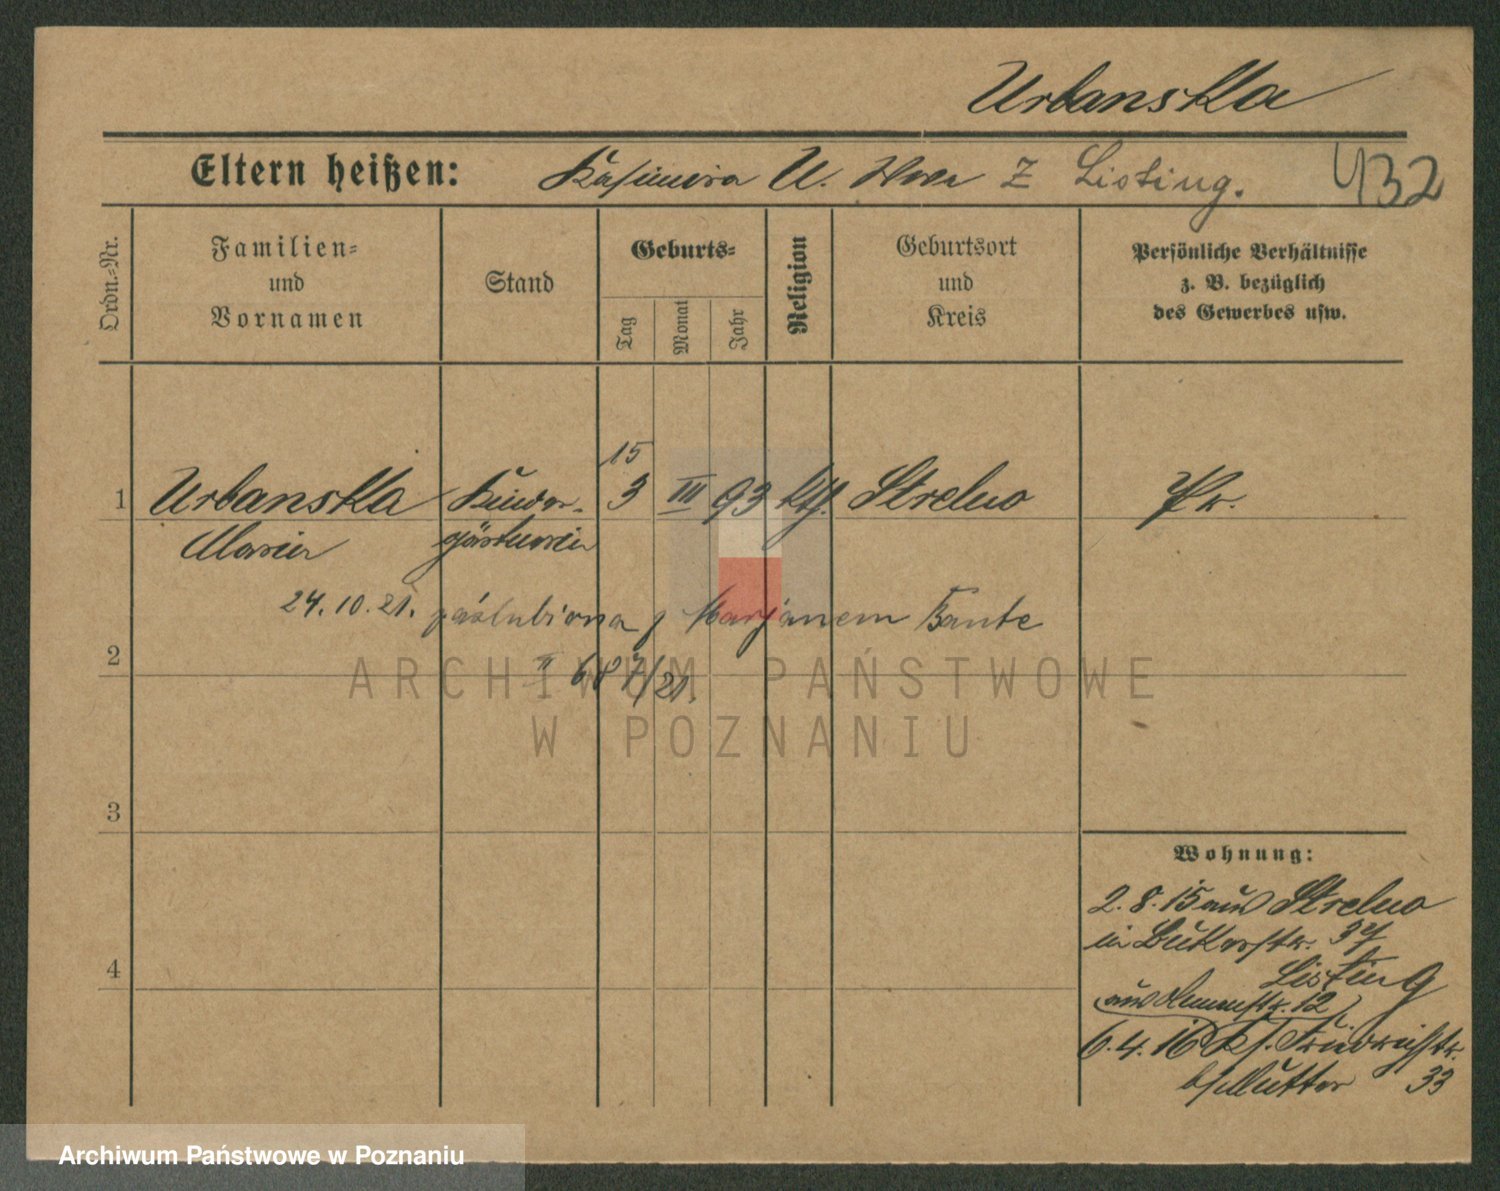 Urbanska
Eltern heißen: Kasimira U. Wwe Z Listing. 432
Ordn.-Nr.
Familien-
und
Vornamen
Stand
Geburts-
Tag
Monat
Jahr
Religion
Geburtsort
und
Kreis
Persönliche Verhältnisse
z. B. bezüglich
des Gewerbes usw.
15
1 Urbanska Kinder- 3 III 93 kth. Strelno Pr.
Maria gärtnerin
24.10.21. zaślubiona z Marjanem Bante
2
II 687/21.
ARCHIWUM PAŃSTWOWE
W POZNANIU
3
Wohnung:
2.8.15 aus Strelno
in Bukerstr. 37
4
Listing
aus 12
6.4.16 Friedrichstr.
b/Mutter 33
Archiwum Państwowe w Poznaniu